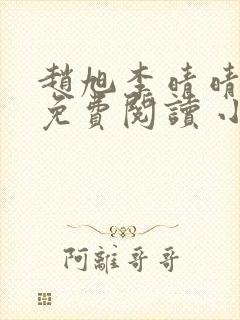 趙旭李晴晴
免費閱讀小
阿離哥哥